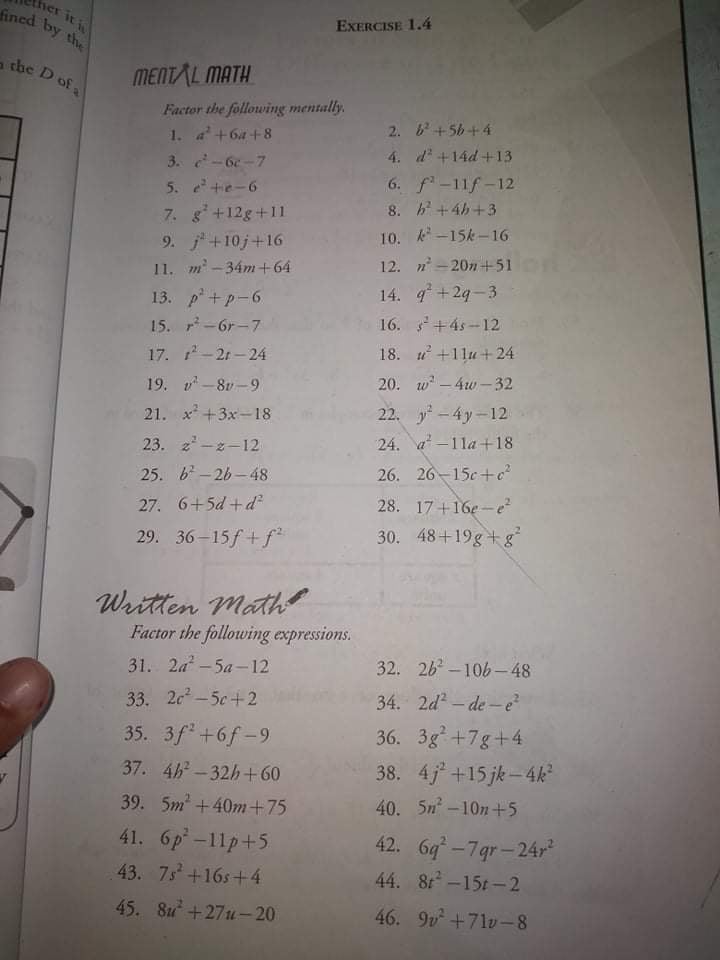 ined by the
the D of a
EXERCISE 1.4
MENTAL MATH
Factor the following mentally.
1. a² + 6a + 8
2. b² + 5b + 4
3. c² - 6c - 7
4. d² + 14d + 13
5. e² + e - 6
6. f² - 11f - 12
7. g² + 12g + 11
8. h² + 4h + 3
9. j² + 10j + 16
10. k² - 15k - 16
11. m² - 34m + 64
12. n² - 20n + 51
13. p² + p - 6
14. q² + 2q - 3
15. r² - 6r - 7
16. s² + 4s - 12
17. t² - 2t - 24
18. u² + 11u + 24
19. v² - 8v - 9
20. w² - 4w - 32
21. x² + 3x - 18
22. y² - 4y - 12
23. z² - z - 12
24. a² - 11a + 18
25. b² - 2b - 48
26. 26 - 15c + c²
27. 6 + 5d + d²
28. 17 + 16e - e²
29. 36 - 15f + f²
30. 48 + 19g + g²
Written Math
Factor the following expressions.
31. 2a² - 5a - 12
32. 2b² - 10b - 48
33. 2c² - 5c + 2
34. 2d² - de - e²
35. 3f² + 6f - 9
36. 3g² + 7g + 4
37. 4h² - 32h + 60
38. 4j² + 15jk - 4k²
39. 5m² + 40m + 75
40. 5n² - 10n + 5
41. 6p² - 11p + 5
42. 6q² - 7qr - 24r²
43. 7s² + 16s + 4
44. 8t² - 15t - 2
45. 8u² + 27u - 20
46. 9v² + 71v - 8